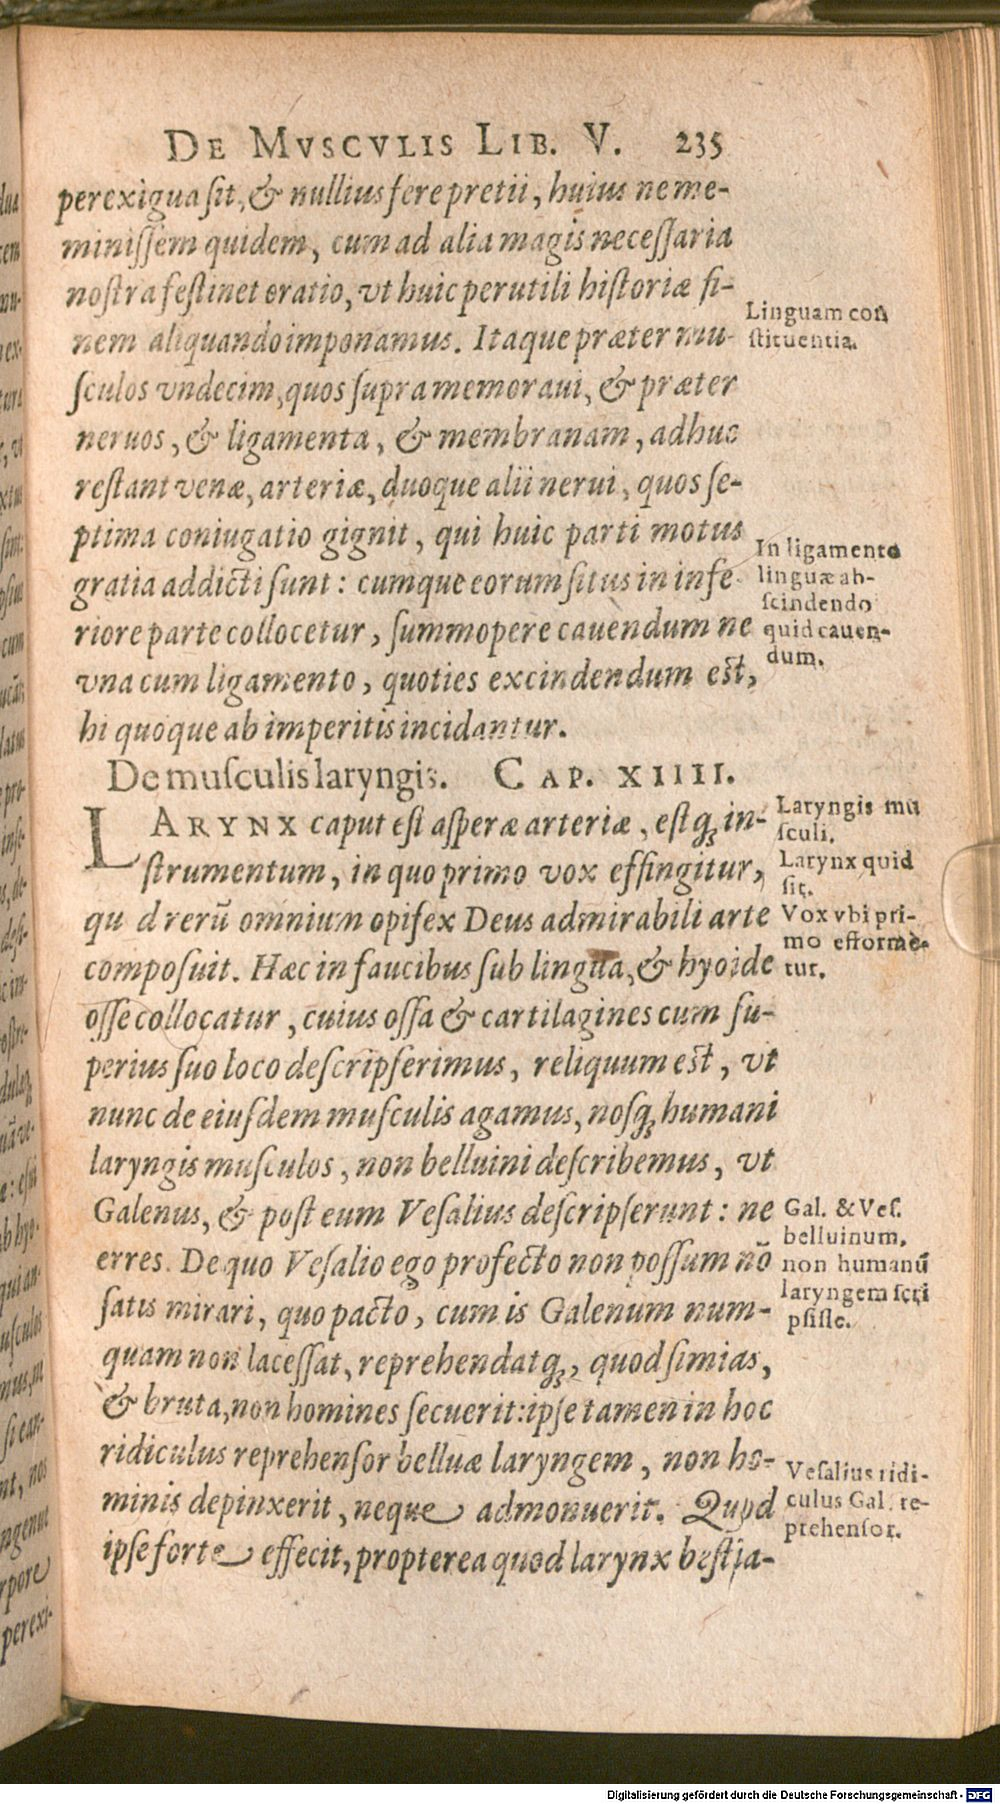 DE MVSCVLIS LIB. V. 235
perexigua sit, & nullius fere pretii, huius ne me-
minißem quidem, cum ad alia magis necessaria
nostra festinet oratio, vt huic perutili historiæ fi-
nem aliquando imponamus. Itaque præter mu-
sculos vndecim, quos supra memoraui, & præter
neruos, & ligamenta, & membranam, adhuc
restant venæ, arteriæ, duoque alii nerui, quos se-
ptima coniugatio gignit, qui huic parti motus
gratia addicti sunt: cumque eorum situs in infe-
riore parte collocetur, summopere cauendum ne
vna cum ligamento, quoties excindendum est,
hi quoque ab imperitis incidantur.
Linguam con
stituentia.
In ligamento
linguæ ab-
scindendo
quid cauen-
dum.
De musculis laryngis. CAP. XIIII.
LARYNX caput est asperæ arteriæ, estq; in-
strumentum, in quo primo vox effingitur,
qu d rerū omnium opifex Deus admirabili arte
composuit. Hæc in faucibus sub lingua, & hyoide
osse collocatur, cuius ossa & cartilagines cum su-
perius suo loco descripserimus, reliquum est, vt
nunc de eiusdem musculis agamus, nosq; humani
laryngis musculos, non belluini describemus, vt
Galenus, & post eum Vesalius descripserunt: ne
erres. De quo Vesalio ego profecto non possum nō
satis mirari, quo pacto, cum is Galenum num-
quam non lacessat, reprehendatq;, quod simias,
& bruta, non homines secuerit: ipse tamen in hoc
ridiculus reprehensor belluæ laryngem, non ho-
minis depinxerit, neque admonuerit. Quod
ipse forte effecit, propterea quod larynx bestia-
Laryngis mu
sculi.
Larynx quid
sit.
Vox vbi pri-
mo efformē-
tur.
Gal. & Ves.
belluinum,
non humanū
laryngem scri
psisse.
Vesalius ridi-
culus Gal. re-
prehensor.
Digitalisierung gefördert durch die Deutsche Forschungsgemeinschaft - DFG